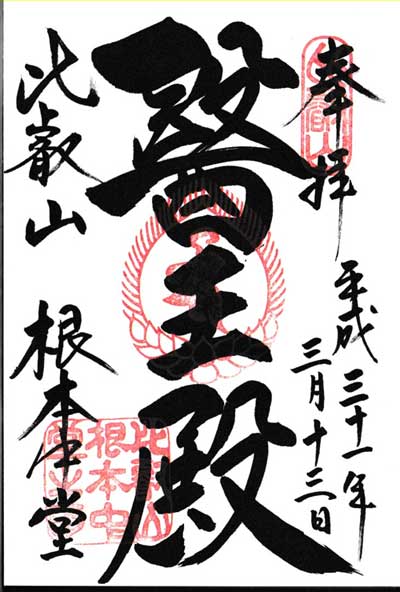 奉拝
平成三十一年
三月十三日
醫王殿
比叡山
根本中堂
比叡山
根本中